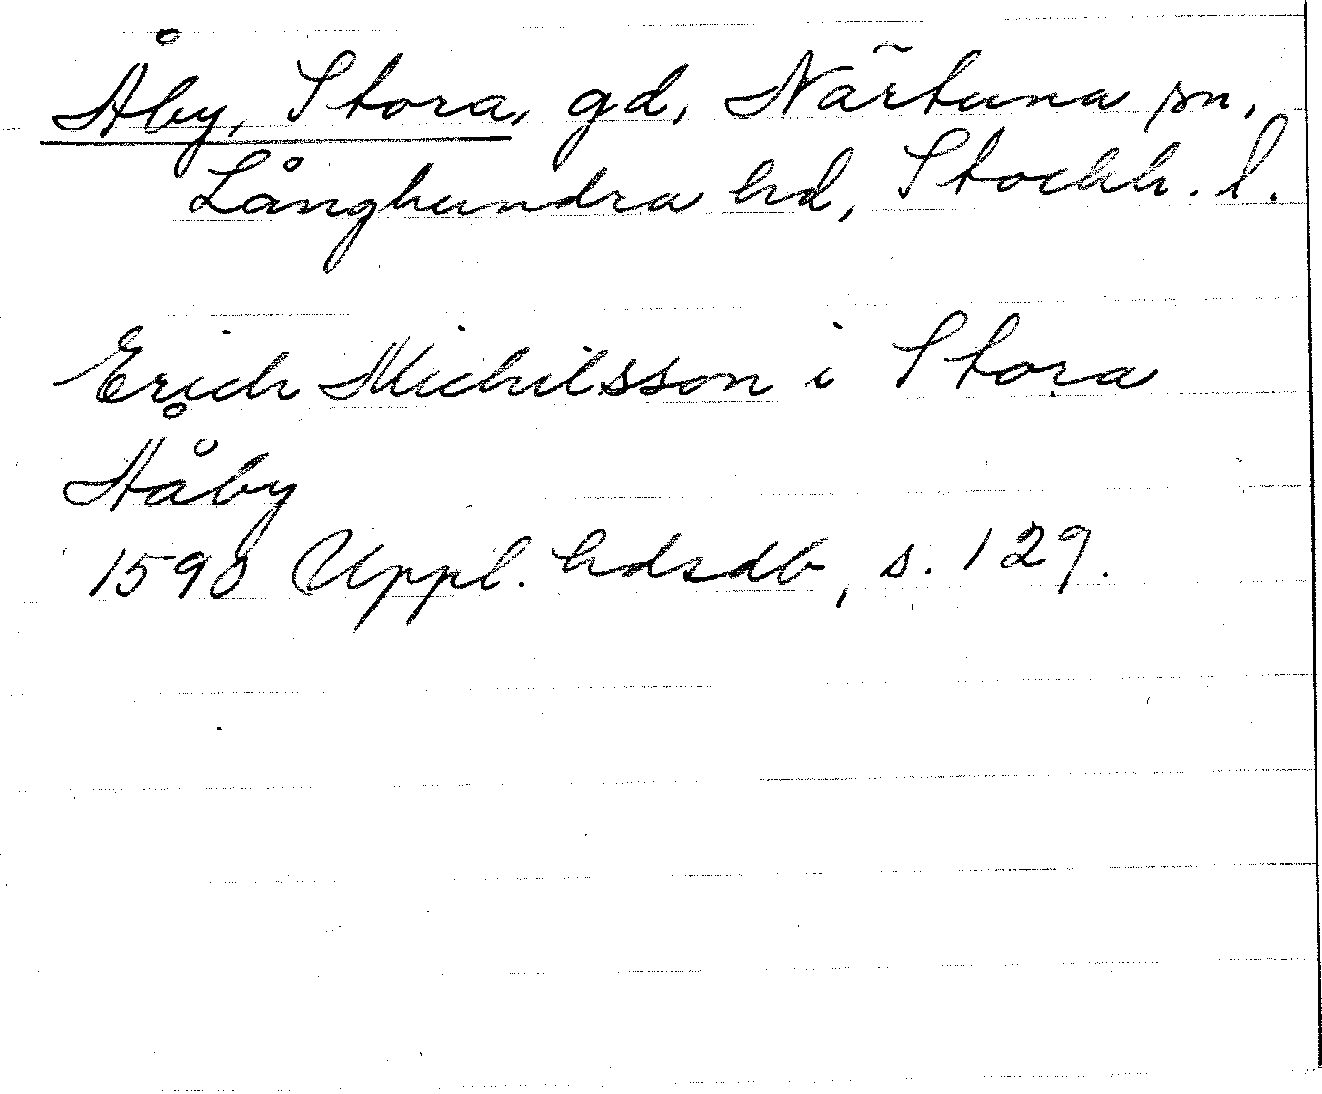 Åby, Stora, gd, Närtuna sn,
Långhundra hd, Stockh. l.
Erich Michilsson i Stora
Ååby
1590 Uppl. hdsdb, s. 129.